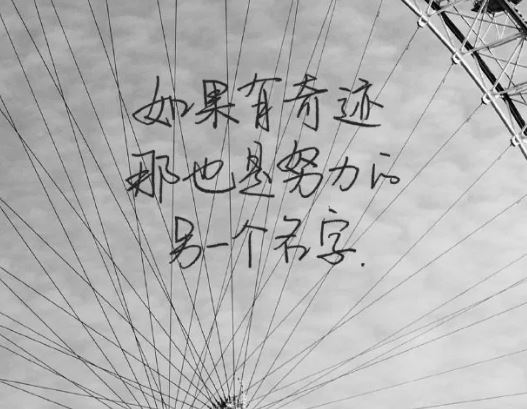 如果有奇迹
那也是努力的
另一个名字.